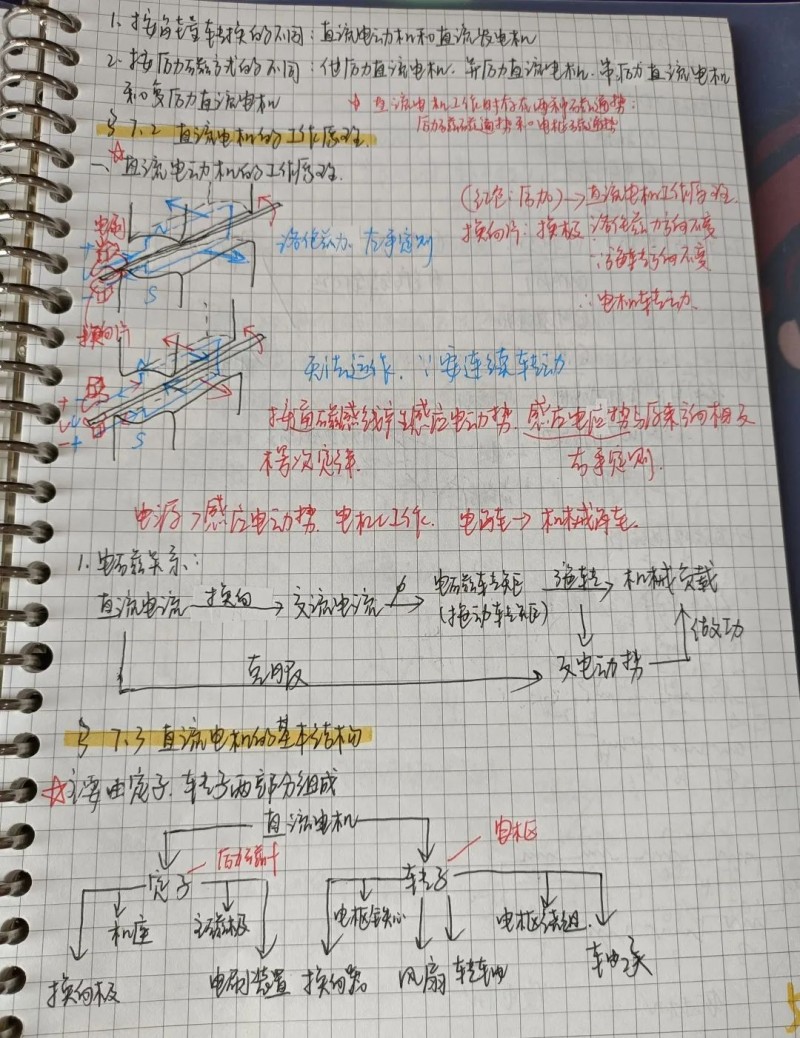 1. 按能量转换的不同：直流电动机和直流发电机
2. 按励磁方式的不同：他励直流电机、并励直流电机、串励直流电机
和复励直流电机
☆ 直流电机工作时存在两种磁通势：
励磁磁通势和电枢磁通势
§ 7.2 直流电机的工作原理
一、直流电动机的工作原理
(红色：后加)→直流电机工作原理
换向片：换极 ∵洛伦兹力方向不变
∴旋转方向不变
∴电机转动
电刷
洛伦兹力 左手定则
N
S
换向片
无法运作 ∵要连续转动
N
S
接通磁感线产生感应电动势 感应电应势与原来方向相反
楞次定律
右手定则
电源>感应电动势 电机工作 电能→机械能
1. 电磁关系：
直流电流 换向→ 交流电流 ϕ→ 电磁转矩 旋转→ 机械负载
(拖动转矩)
做功
克服 反电动势
§ 7.3 直流电机的基本结构
☆主要由定子、转子两部分组成
直流电机
定子 励磁 转子 电枢
机座 主磁极 电枢铁心 电枢绕组
换向极 电刷装置 换向器 风扇 转轴